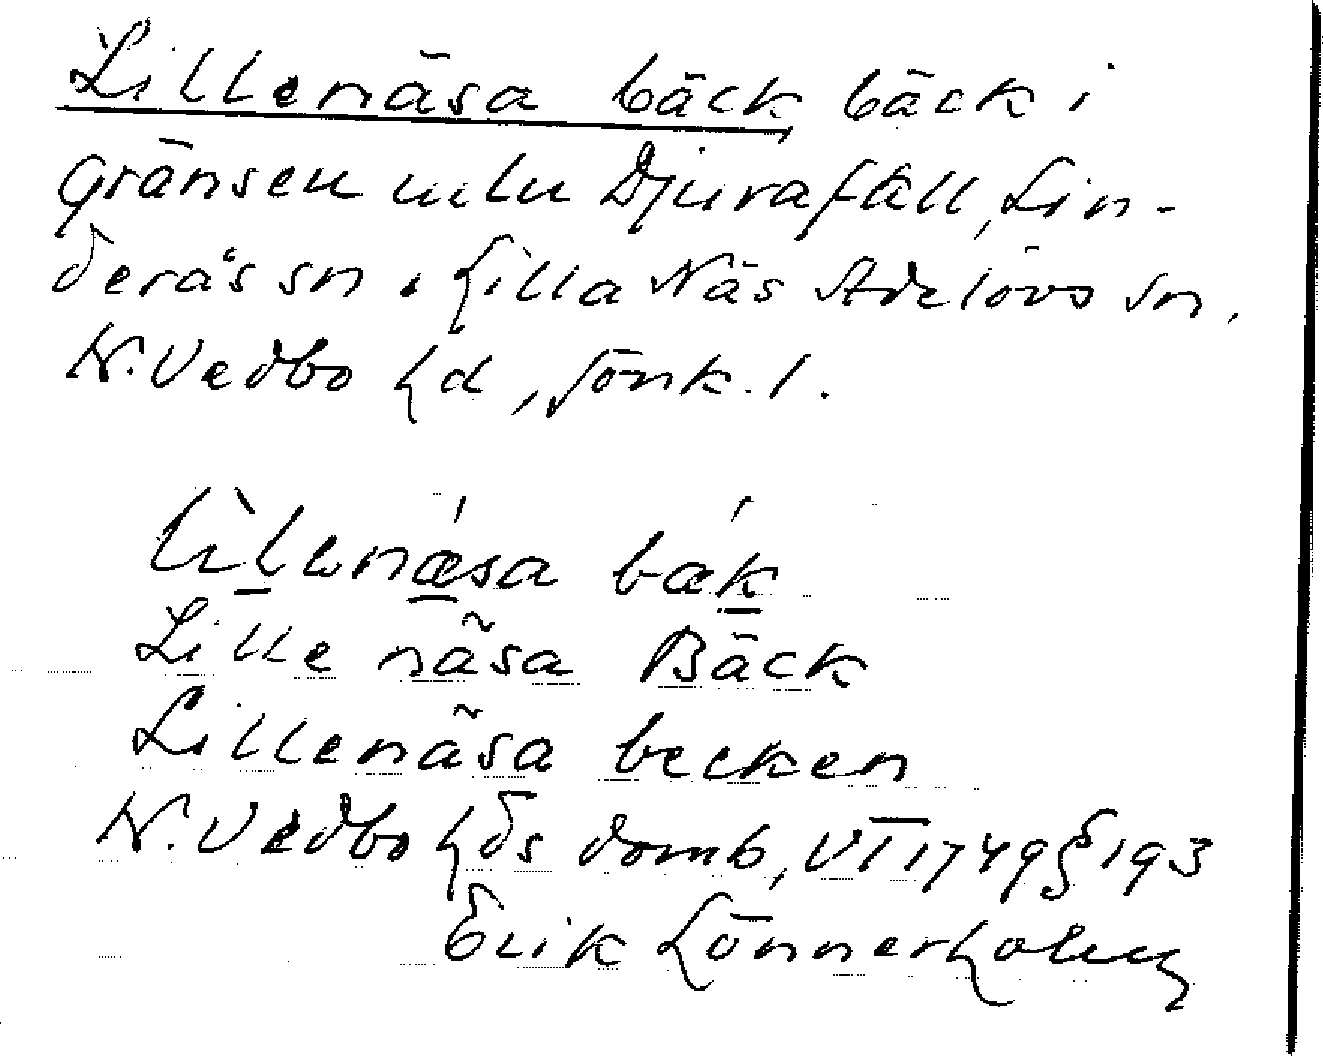 Lillenäsa bäck, bäck i
gränsen mln Djurafall, Lin-
derås sn o. Lilla Näs Adelövs sn,
N. Vedbo hd, Jönk. l.
lilenǽsa bǽk
Lille näsa Bäck
Lillenäsa becken
N. Vedbo hds domb, VT 1749 § 193
Erik Lönnerholm